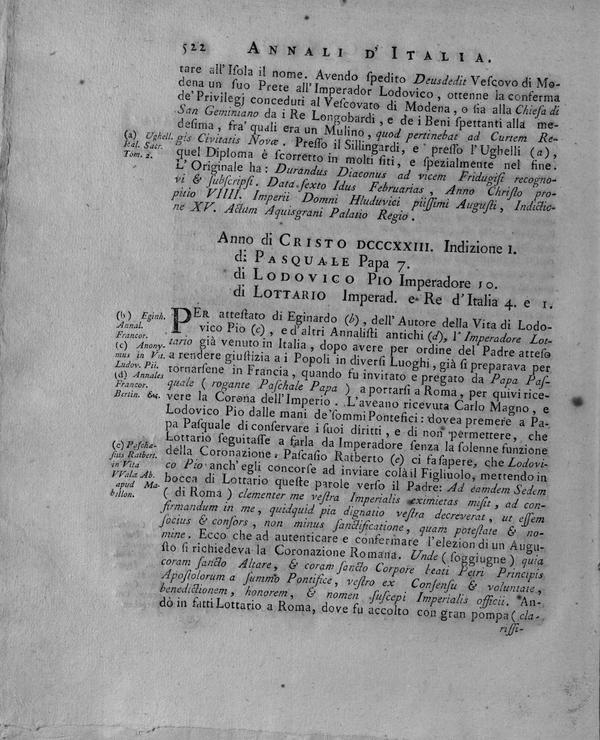 522 ANNALI D'ITALIA.
tare all'Isola il nome. Avendo spedito Deusdedit Vescovo di Mo-
dena un suo Prete all'Imperador Lodovico, ottenne la conferma
de' Privilegj conceduti al Vescovato di Modena, o sia alla Chiesa di
San Geminiano da i Re Longobardi, e de i Beni spettanti alla me-
desima, fra' quali era un Mulino, quod pertinebat ad Curtem Re-
gis Civitatis Novæ. Presso il Sillingardi, e presso l'Ughelli (a),
quel Diploma è scorretto in molti siti, e spezialmente nel fine.
L'Originale ha: Durandus Diaconus ad vicem Fridugisi recogno-
vi & subscripsi. Data sexto Idus Februarias, Anno Christo pro-
pitio VIIII. Imperii Domni Hluduvici piissimi Augusti, Indictio-
ne XV. Actum Aquisgrani Palatio Regio.
(a) Ughell.
Ital. Sacr.
Tom. 2.
Anno di CRISTO DCCCXXIII. Indizione I.
di PASQUALE Papa 7.
di LODOVICO PIO Imperadore 10.
di LOTTARIO Imperad. e Re d'Italia 4. e 1.
PER attestato di Eginardo (b), dell'Autore della Vita di Lodo-
vico Pio (c), e d'altri Annalisti antichi (d), l'Imperadore Lot-
tario già venuto in Italia, dopo avere per ordine del Padre atteso
a rendere giustizia a i Popoli in diversi Luoghi, già si preparava per
tornarsene in Francia, quando fu invitato e pregato da Papa Pas-
quale (rogante Paschale Papa) a portarsi a Roma, per quivi rice-
vere la Corona dell'Imperio. L'aveano ricevuta Carlo Magno, e
Lodovico Pio dalle mani de' sommi Pontefici: dovea premere a Pa-
pa Pasquale di conservare i suoi diritti, e di non permettere, che
Lottario seguitasse a farla da Imperadore senza la solenne funzione
della Coronazione. Pascasio Ratberto (e) ci fa sapere, che Lodovi-
co Pio anch'egli concorse ad inviare colà il Figliuolo, mettendo in
bocca di Lottario queste parole verso il Padre: Ad eamdem Sedem
(di Roma) clementer me vestra Imperialis eximietas misit, ad con-
firmandum in me, quidquid pia dignatio vestra decreverat, ut essem
socius & consors, non minus sanctificatione, quam potestate & no-
mine. Ecco che ad autenticare e confermare l'elezion di un Augu-
sto si richiedeva la Coronazione Romana. Unde (soggiugne) quia
coram sancto Altare, & coram sancto Corpore beati Petri Principis
Apostolorum a summo Pontifice, vestro ex Consensu & voluntate,
benedictionem, honorem, & nomen suscepi Imperialis officii. An-
dò in fatti Lottario a Roma, dove fu accolto con gran pompa (cla-
rissi-
(b) Eginh.
Annal.
Francor.
(c) Anony-
mus in Vit.
Ludov. Pii.
(d) Annales
Francor.
Bertin. &c.
(e) Pascha-
sius Ratbert.
in Vita
VValæ Ab.
apud Ma-
billon.